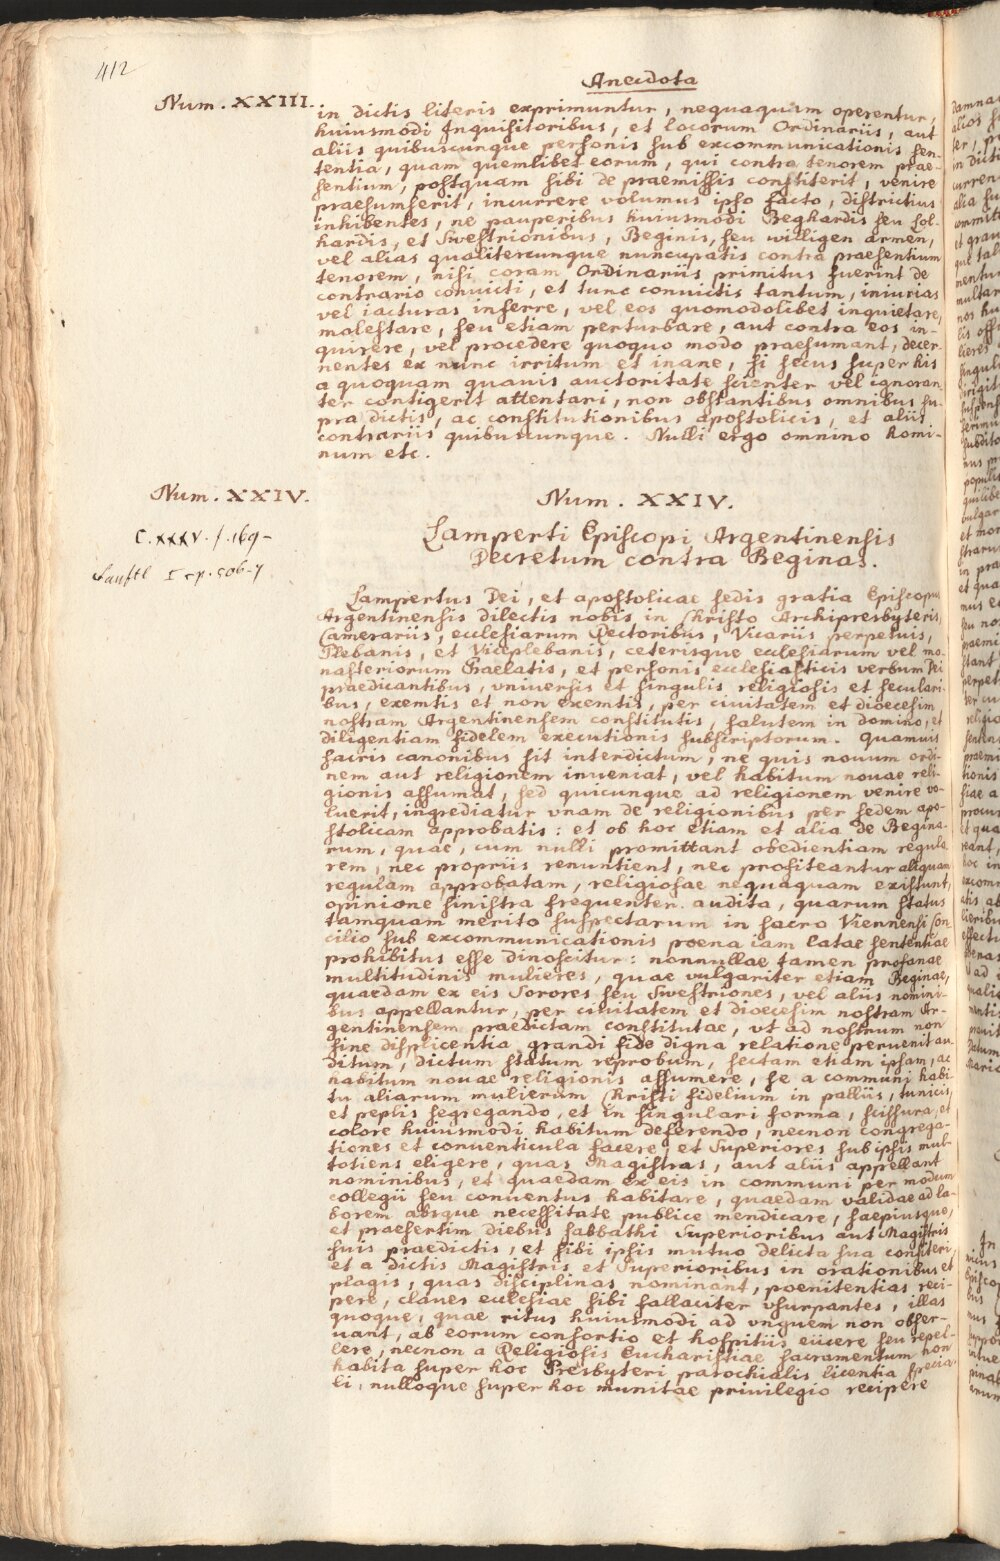 412
Anecdota
Num. XXIII.
in dictis literis exprimuntur, nequaquam operentur,
huiusmodi Inquisitoribus, et locorum Ordinariis, aut
aliis quibuscunque personis sub excommunicationis sen-
tentia, quam quemlibet eorum, qui contra tenorem prae-
sentium, postquam sibi de praemissis constiterit, venire
praesumserit, incurrere volumus ipso facto, districtius
inhibentes, ne pauperibus huiusmodi Beghardis seu Lol-
hardis, et Swestrionibus, Beginis, seu willigen armen,
vel alias qualitercunque nuncupatis contra praesentium
tenorem, nisi coram Ordinariis primitus fuerint de
contrario convicti, et tunc convictis tantum, iniurias
vel iacturas inferre, vel eos quomodolibet inquietare,
molestare, seu etiam perturbare, aut contra eos in-
quirere, vel procedere quoquo modo praesumant, decer-
nentes ex nunc irritum et inane, si secus super his
a quoquam quavis auctoritate scienter vel ignoran-
ter contigerit attentari, non obstantibus omnibus su-
pra dictis, ac constitutionibus apostolicis, et aliis
contrariis quibuscunque. Nulli ergo omnino homi-
num etc.
Num. XXIV.
Num. XXIV.
C. XXXV. f. 169-
I cp. 506-7
Lamperti Episcopi Argentinensis
Decretum contra Beginas.
Lampertus Dei, et apostolicae sedis gratia Episcopus
Argentinensis dilectis nobis in Christo Archipresbyteris,
Camerariis, ecclesiarum Rectoribus, Vicariis perpetuis,
Plebanis, et Viceplebanis, ceterisque ecclesiarum vel mo-
nasteriorum Praelatis, et personis ecclesiasticis verbum Dei
praedicantibus, vniversis et singulis religiosis et seculari-
bus, exemtis et non exemtis, per ciuitatem et dioecesim
nostram Argentinensem constitutis, salutem in domino, et
diligentiam fidelem executionis subscriptorum. Quamuis
sacris canonibus sit interdictum, ne quis nouum ordi-
nem aut religionem inveniat, vel habitum nouae reli-
gionis assumat, sed quicunque ad religionem venire vo-
luerit, ingrediatur vnam de religionibus per sedem apo-
stolicam approbatis: et ob hoc etiam et alia de Begina-
rum, quae, cum nulli promittant obedientiam regula-
rem, nec propriis renuntient, nec profiteantur aliquam
regulam approbatam, religiosae nequaquam existunt,
opinione sinistra frequenter audita, quarum status
tamquam merito suspectarum in sacro Viennensi Con-
cilio sub excommunicationis poena iam latae sententiae
prohibitus esse dinoscitur: nonnullae tamen profanae
multitudinis mulieres, quae vulgariter etiam Beginae,
quaedam ex eis Sorores seu Swestriones, vel aliis nomini-
bus appellantur, per ciuitatem et dioecesim nostram Ar-
gentinensem praedictam constitutae, vt ad nostrum non
sine displicentia grandi fide digna relatione peruenit au-
ditum, dictum statum reprobum, sectam etiam ipsam, ac
habitum nouae religionis assumere, se a communi habi-
tu aliarum mulierum Christi fidelium in palliis, tunicis,
et peplis segregando, et in singulari forma, scissura, et
colore huiusmodi habitum deferendo, necnon congrega-
tiones et conuenticula facere, et Superiores sub ipsis mul-
totiens eligere, quas Magistras, aut aliis appellant
nominibus, et quaedam ex eis in communi per modum
collegii seu conuentus habitare, quaedam validae ad la-
borem absque necessitate publice mendicare, saepiusque,
et praesertim diebus sabbathi Superioribus aut Magistris
suis praedictis, et sibi ipsis mutuo delicta sua confiteri,
et a dictis Magistris et Superioribus in orationibus et
plagis, quas disciplinas nominant, poenitentias reci-
pere, claues ecclesiae sibi fallaciter vsurpantes, illas
quoque, quae ritus huiusmodi ad vnguem non obser-
uant, ab eorum consortio et hospitiis eiicere seu repel-
lere, necnon a Religiosis Eucharistiae sacramentum non
habita super hoc Presbyteri parochialis licentia specia-
li, nulloque super hoc munitae privilegio recipere